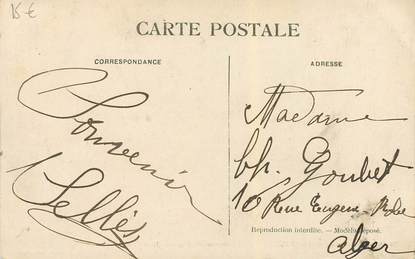 15 €
CARTE POSTALE
CORRESPONDANCE
ADRESSE
Souvenir
Sellès
Madame
Ch. Goubet
10 Rue Eugène Robe
Reproduction interdite. — Modèle déposé.
Alger